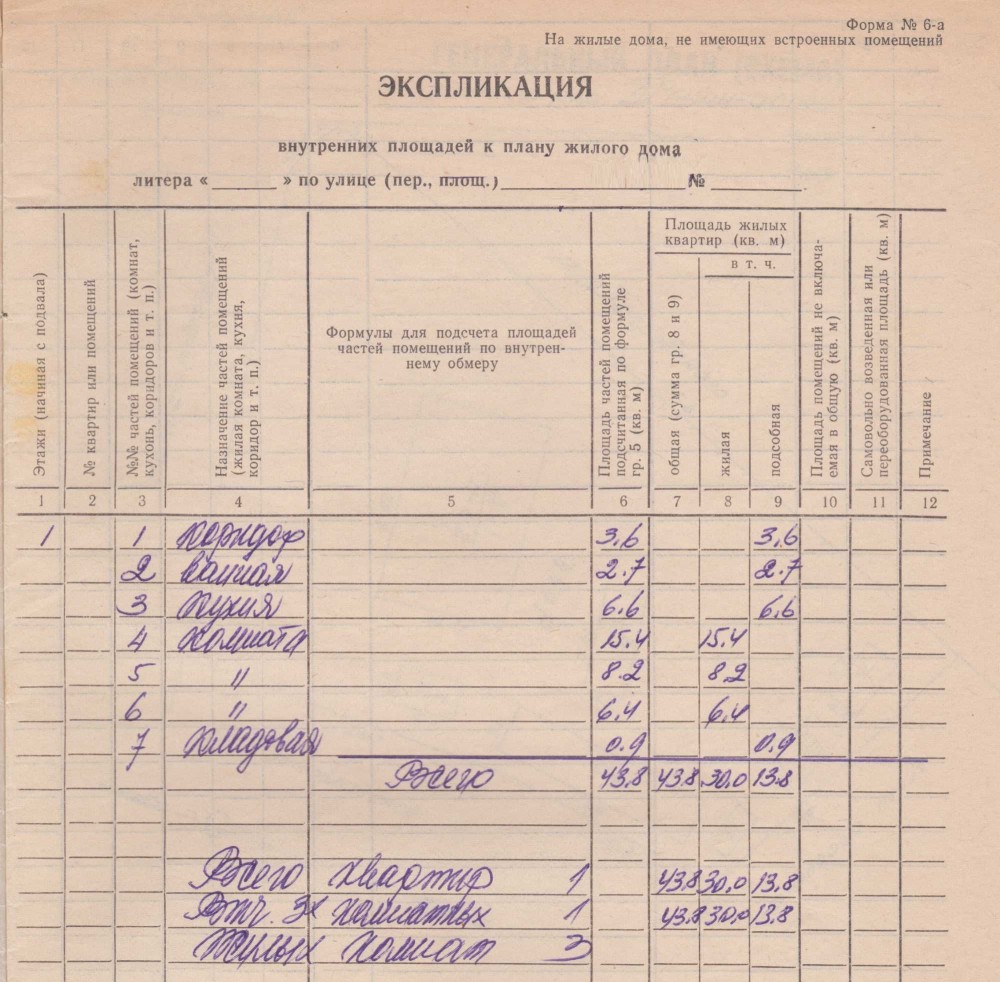 Форма № 6-а
На жилые дома, не имеющих встроенных помещений
ЭКСПЛИКАЦИЯ
внутренних площадей к плану жилого дома
литера «______» по улице (пер., площ.)__________________№ _________
Этажи (начиная с подвала)
№ квартир или помещений
№№ частей помещений (комнат,
кухонь, коридоров и т. п.)
Назначение частей помещений
(жилая комната, кухня,
коридор и т. п.)
Формулы для подсчета площадей
частей помещений по внутрен-
нему обмеру
Площадь частей помещений
подсчитанная по формуле
гр. 5 (кв. м)
Площадь жилых
квартир (кв. м)
общая (сумма гр. 8 и 9)
в т. ч.
жилая
подсобная
Площадь помещений не включа-
емая в общую (кв. м)
Самовольно возведенная или
переоборудованная площадь (кв. м)
Примечание
1 2 3 4 5 6 7 8 9 10 11 12
1 1 коридор 3,6 3,6
2 ванная 2.7 2.7
3 кухня 6.6 6.6
4 комната 15.4 15.4
5 " 8.2 8.2
6 " 6.4 6.4
7 кладовая 0.9 0.9
Всего 43.8 43.8 30.0 13.8
Всего квартир 1 43.8 30.0 13.8
Втч. 3х комнатных 1 43.8 30.0 13.8
Жилых комнат 3